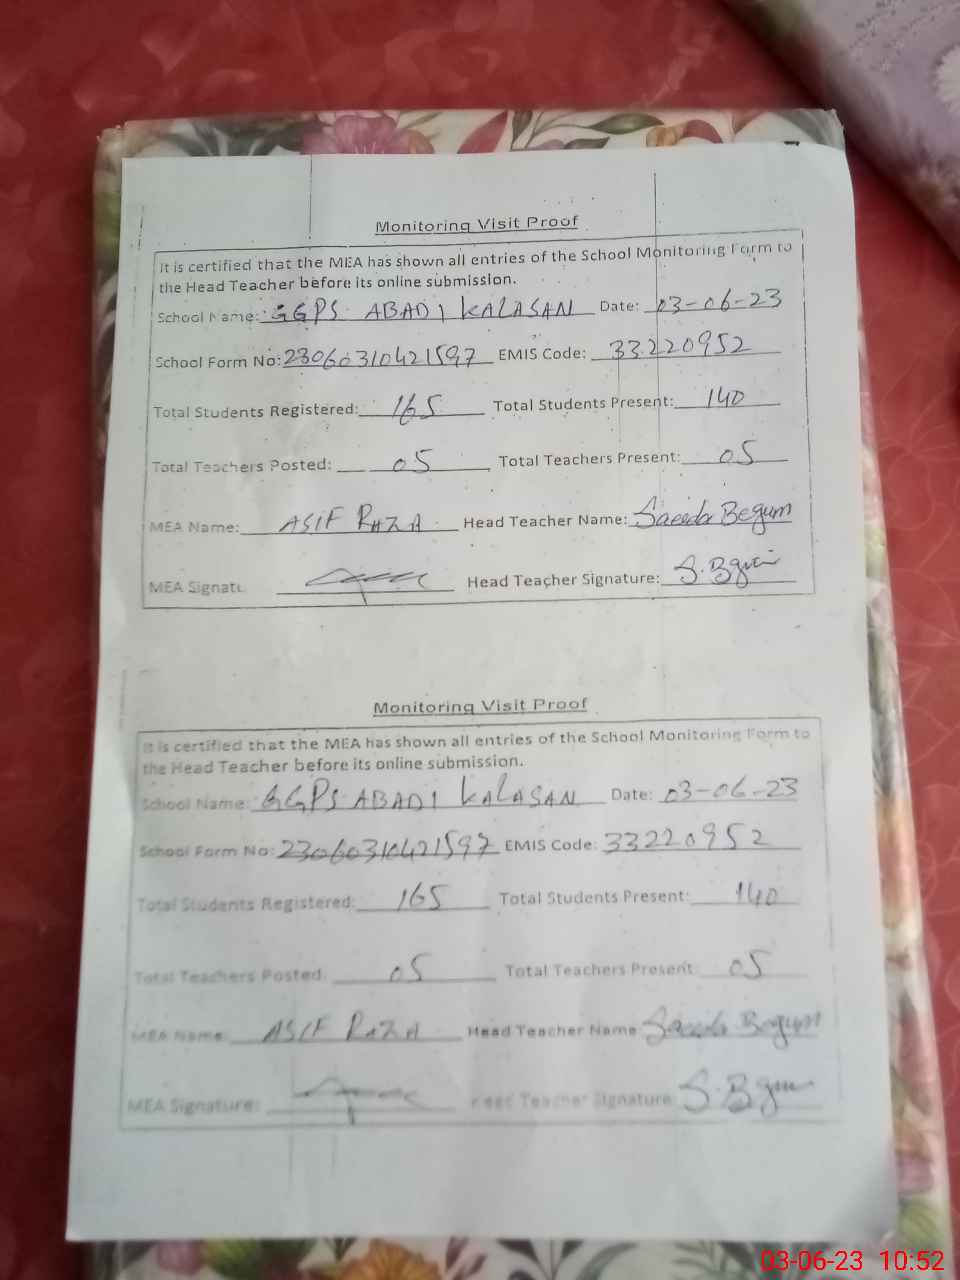 Monitoring Visit Proof
It is certified that the MEA has shown all entries of the School Monitoring Form to
the Head Teacher before its online submission.
School Name: GGPS ABADI KALASAN Date: 03-06-23
School Form No: 23060310421597 EMIS Code: 33220952
Total Students Registered: 165 Total Students Present: 140
Total Teachers Posted: 05 Total Teachers Present: 05
MEA Name: ASIF RAZA Head Teacher Name: Saeeda Begum
MEA Signatu Head Teacher Signature: S. Bgum
Monitoring Visit Proof
It is certified that the MEA has shown all entries of the School Monitoring Form to
the Head Teacher before its online submission.
School Name: GGPS ABADI KALASAN Date: 03-06-23
School Form No: 23060310421597 EMIS Code: 33220952
Total Students Registered: 165 Total Students Present: 140
Total Teachers Posted: 05 Total Teachers Present: 05
MEA Name: ASIF RAZA Head Teacher Name Saeeda Begum
MEA Signature: Head Teacher Signature: S. Bgum
03-06-23 10:52